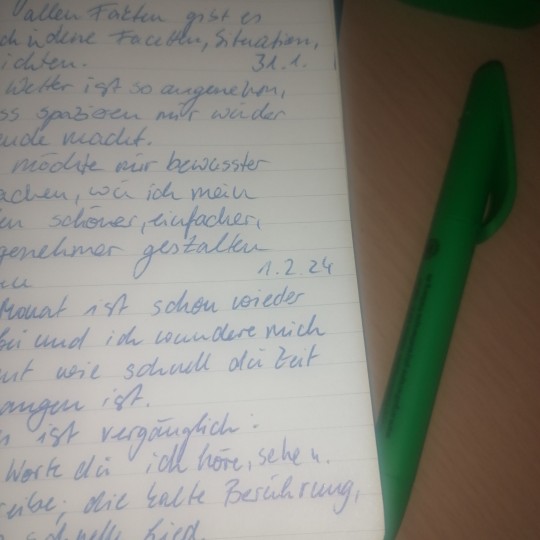 allen Fakten gibt es
Facetten, Situation,
ichten. 31.1.
Wetter ist so angenehm,
ss spazieren mir wieder
eude macht.
möchte mir bewusster
achen, wie ich mein
en schöner, einfacher,
genehmer gestalten
nn 1.2.24
Monat ist schon wieder
bei und ich wundere mich
wie schnell die Zeit
angen ist.
ist vergänglich:
Worte die ich höre, sehe u.
reibe; die kalte Berührung,
schnelle Lied